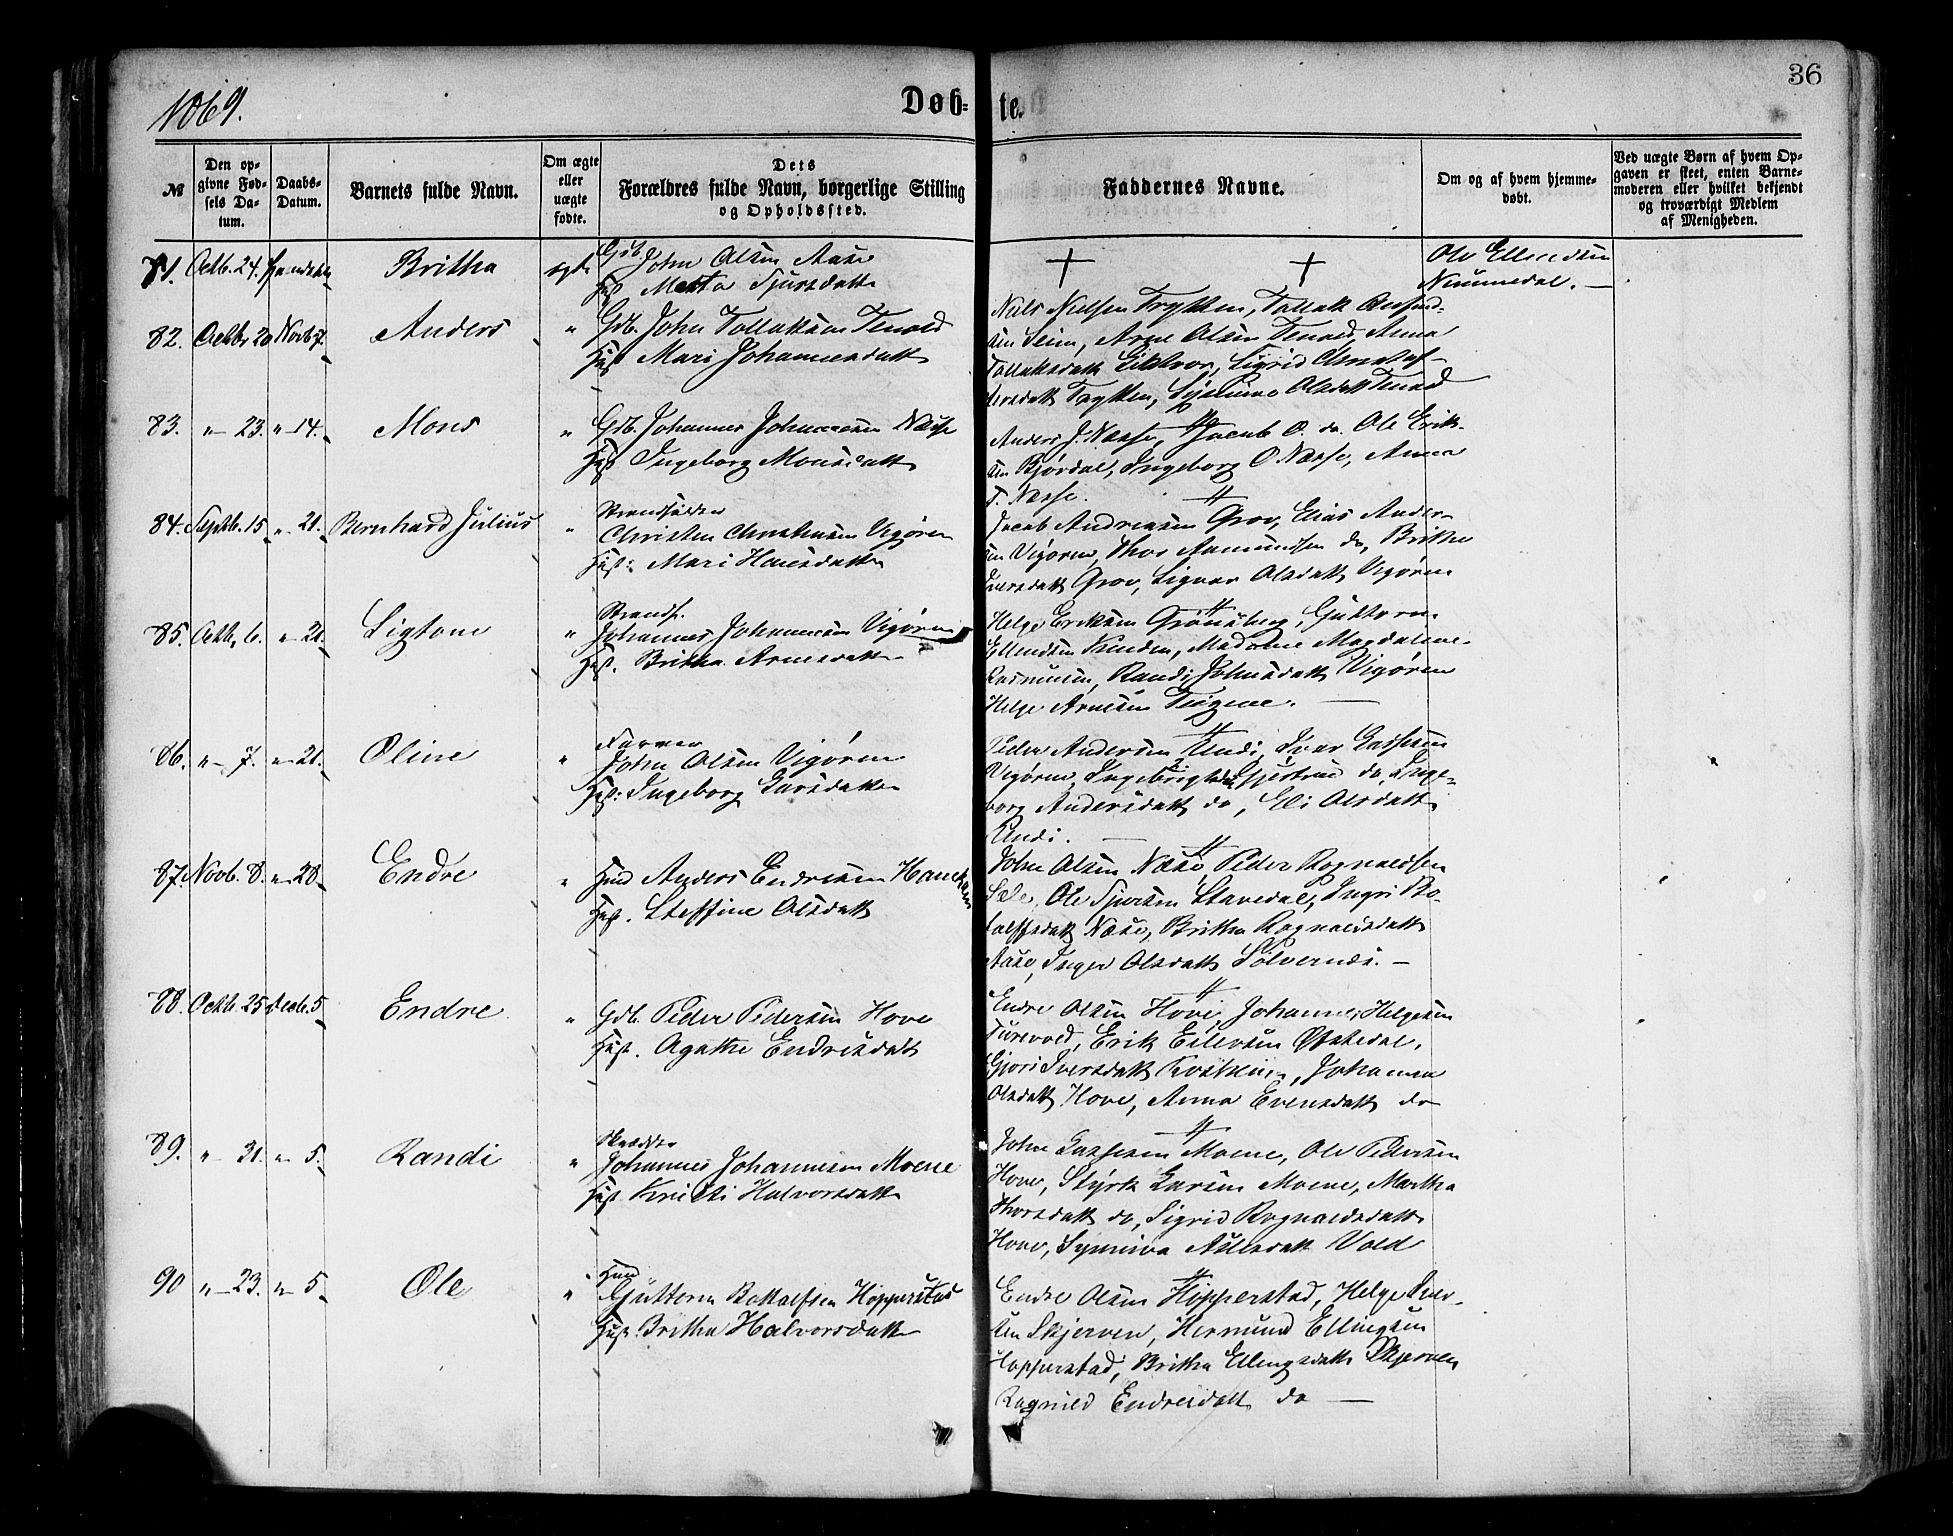 36
1869.
Døb- te.
№
Den op-
givne Fød-
sels Da-
tum.
Daabs-
Datum.
Barnets fulde Navn.
Om ægte
eller
uægte
fødte.
Dets
Forældres fulde Navn, borgerlige Stilling
og Opholdssted.
Faddernes Navne.
Om og af hvem hjemme-
døbt.
Ved uægte Børn af hvem Op-
gaven er skeet, enten Barne-
moderen eller hvilket bekjendt
og troværdigt Medlem
af Menigheden.
81. Octb. 24. Britha ægte Gdb. John Olsen Aase
Hust. Metta Sjursdatter
Ole Ellendsen
Nummedal. —
82. Octb. 20 Novb 7. Anders " Gdb. John Tollaksen Tenold
Hust Mari Johannesdatter
Niels Nielsen Trytten, Tollak
sen Seim, Arne Olsen Tenold, Anna
Tollaksdatt. Sigrid
Trytten, Olsdatt Tenold
83. " — 23. " — 14. Mons " Gdb. Johannes Johannesen Næsse
Hust Ingeborg Monsdatter
Anders J. Næsse, Jacob O. do. Ole Erik-
sen Bjørdal, Ingeborg O Næsse, Anna
T. Næsse.
84. Septb. 15 " — 21. Bernhard Julius " Strandsidder
Christen Christensen Vigøren
Hust: Mari Hansdatter
Jacob Andreasen Grov, Elias Ander-
sen Vigøren, Thor Aamundsen do, Britha
Iversdatt Grov, Signar Olsdatt Vigøren
85. Octb. 6. " — 21. Sigtone " Strands.
Johannes Johannesen Vigøren
Hust. Britha Arnesdatter
Helge Eriksen Grønsberg, Guttorm
Ellendsen Kinden, Madame Magdalene
Rasmusen, Randi Johnsdatt Vigøren
Helge Arnesen —
86. " — 7. " — 21. Oline " Farver
John Olsen Vigøren
Hust: Ingeborg Larsdatter
Peder Andersen Undi, Ivar Lassesen
Vigøren, Gjertrud do, Inge-
borg Andersdatt do, Eli Olsdatt
Undi. —
87. Novb. 8. " — 28. Endre " Hmd Anders Endresen
Hust. Steffine Olsdatt
John Olsen Næse, Peder Rognaldsen
Sæle, Ole Sjursen Stavedal, Ingri Bo-
talfsdatt Næse, Britha Rognaldsdatt
Aase, Inger Olsdatt —
88. Octb. 25 Decb. 5 Endre " Gdb. Peder Pedersen Hove
Hust. Agathe Endresdatt
Endre Olsen Hove, Johannes Helgesen
Turevold, Erik Eilevsen
Gjori Iversdatt Johanna
Olsdatt Hove, Anna Evensdatt do
89. " — 31. " — 5. Randi " Skrædder
Johannes Johannesen Moene
Hust. Kristi Halvorsdatter
John Lassesen Moene, Ole Pedersen
Hove, Styrk Larsen Moene, Martha
Thorsdatt do, Sigrid Rognaldsdatt
Hove, Synneva Vold
90 " — 23. " — 5. Ole " Hmd
Guttorm Bottolfsen Hopperstad
Hust. Britha Halvorsdatter
Endre Olsen Hopperstad, Helge Iver-
sen Skjerven, Hermund Ellingsen
Hopperstad, Britha Ellingsdatt Skjerven
Ragnild Endresdatt do —